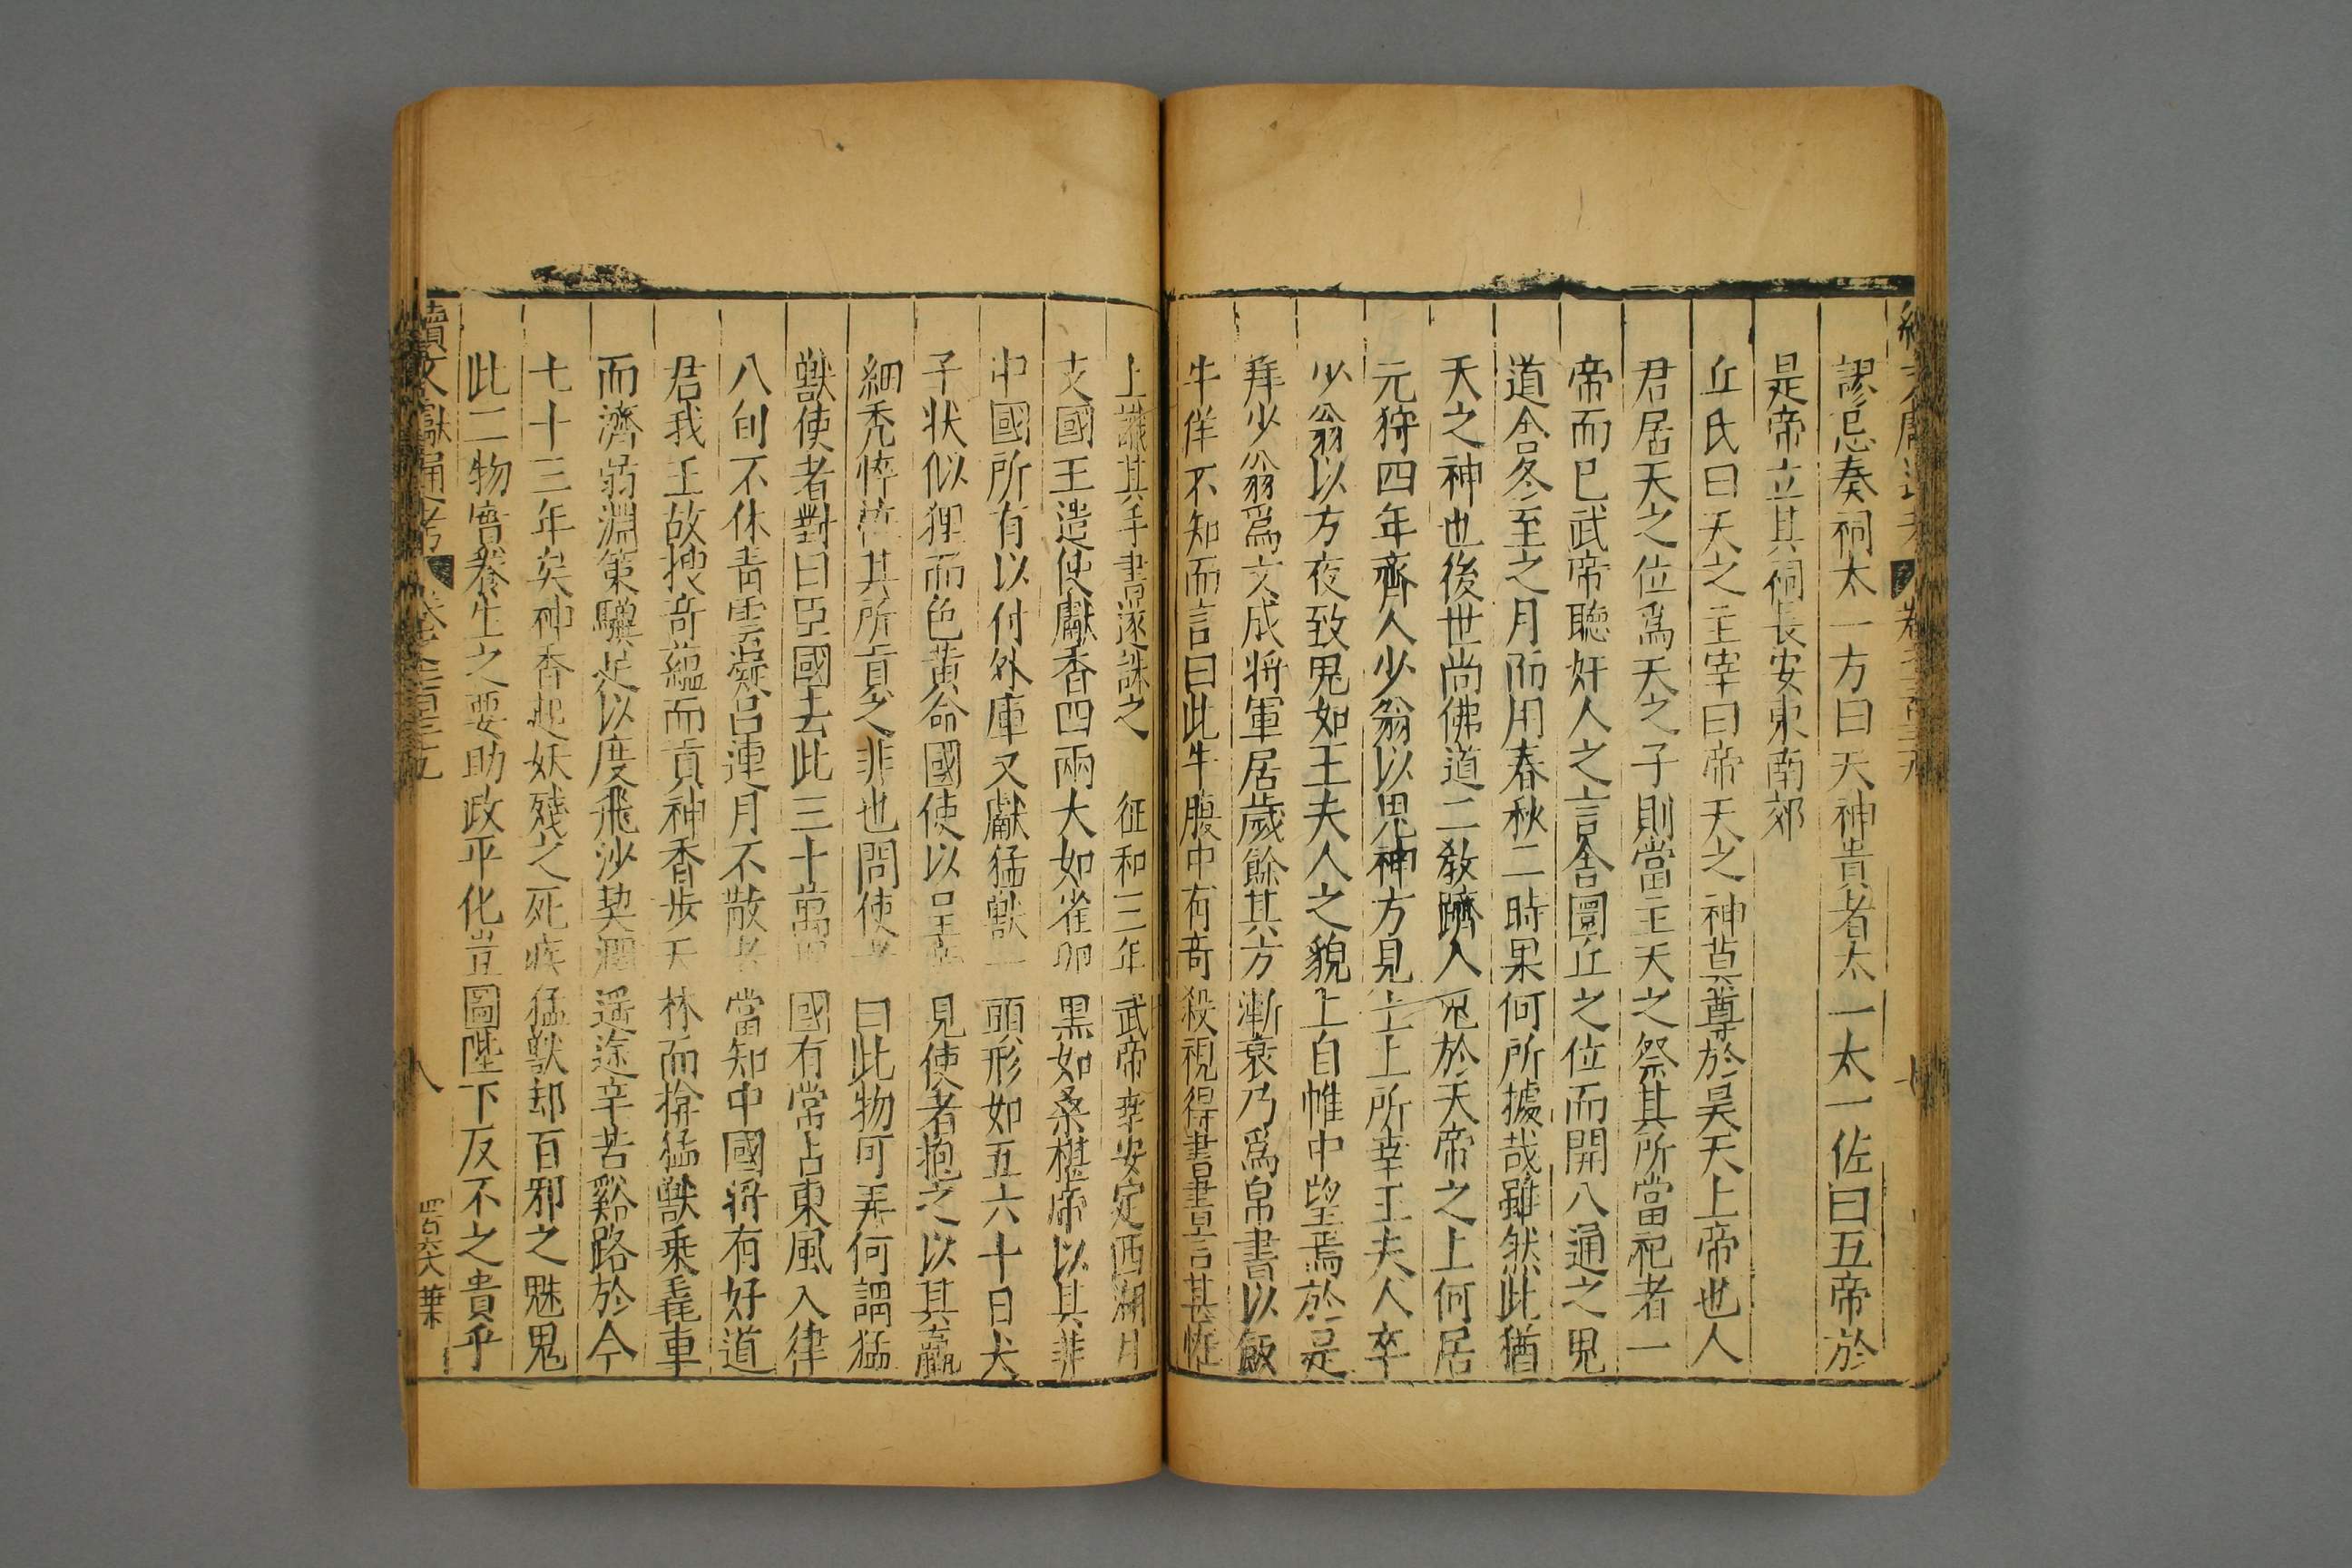 謬忌奏祠太一方曰天神貴者太一太一佐曰五帝於
是帝立其祠長安東南郊
丘氏曰天之主宰曰帝天之神莫尊於昊天上帝也人
君居天之位爲天之子則當主天之祭其所當祀者一
帝而已武帝聽奸人之言舍圜丘之位而開八通之鬼
道舍冬至之月而用春秋二時果何所據哉雖然此猶
天之神也後世尚佛道二教躋人鬼於天帝之上何居
元狩四年齊人少翁以鬼神方見上上所幸王夫人卒
少翁以方夜致鬼如王夫人之貌上自帷中望焉於是
拜少翁爲文成將軍居歲餘其方漸衰乃爲帛書以飯
牛佯不知而言曰此牛腹中有奇殺視得書書言甚恠
上識其手書遂誅之 征和三年武帝幸安定西湖月
支國王遣使獻香四兩大如雀卵黑如桑椹帝以其非
中國所有以付外庫又獻猛獸一頭形如五六十日犬
子狀似狸而色黄命國使以呈帝見使者抱之以其羸
細禿悴恠其所貢之非也問使者曰此物可弄何謂猛
獸使者對曰臣國去此三十萬里國有常占東風入律
八旬不休青雲凝呂連月不散者當知中國將有好道
君我王故搜奇藴而貢神香步天林而擒猛獸乘毳車
而濟弱淵策驥足以度飛沙契濶遥途辛苦谿路於今
七十三年矣神香起妖殘之死疾猛獸却百邪之魅鬼
此二物實養生之要助政平化豈圖陛下反不之貴乎
續文獻通考 八 葉